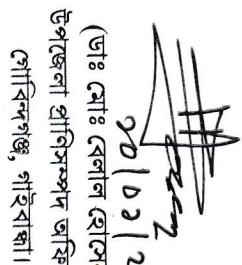 (ডাঃ মোঃ বেলাল হোসে
উপজেলা প্রাণিসম্পদ অফি
গোবিন্দগঞ্জ, গাইবান্ধা।